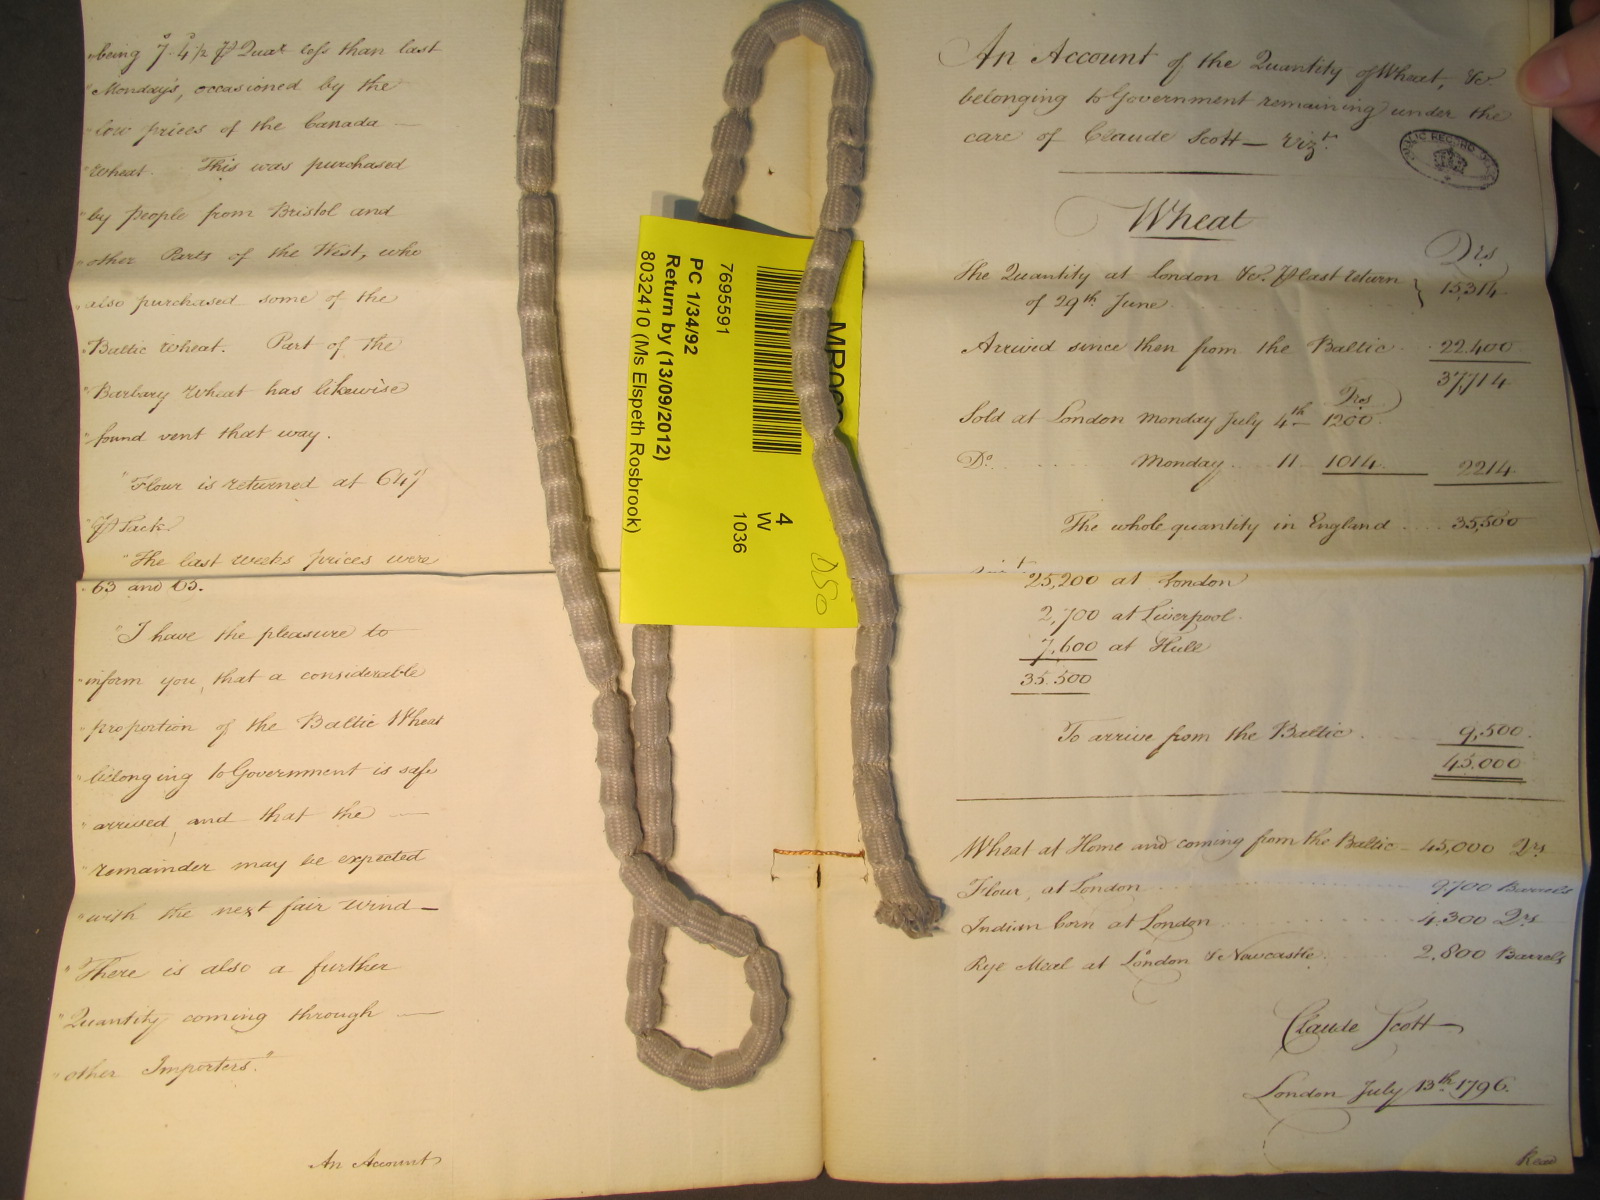 "being 7s. 4d1/2 ⅌ Quar less than last
"Monday's, occasioned by the
"low prices of the Canada —
"Wheat. This was purchased
"by people from Bristol and
"other Parts of the West, who
"also purchased some of the
"Baltic Wheat. Part of the
"Barbary Wheat has likewise
"found vent that way.
"Flour is returned at 64/
"⅌ Sack
"The last weeks prices were
63 and 65.
"I have the pleasure to
"inform you, that a considerable
"proportion of the Baltic Wheat
"belonging to Government is safe
"arrived, and that the —
"remainder may be expected
"with the next fair wind —
"There is also a further
"Quantity coming through —
"other Importers."
An Account
7695591
PC 1/34/92
Return by (13/09/2012)
8032410 (Ms Elspeth Rosbrook)
4
W
1036
DSO
An Account of the Quantity of Wheat, &c.
belonging to Government remaining under the
care of Claude Scott — vizt.
PUBLIC RECORD OFFICE
Wheat
Qrs
The Quantity at London &c. ⅌ last return
of 29th June 15,314
Arrived since then from the Baltic 22,400
37,714
Qrs
Sold at London Monday July 4th 1200
Do. Monday 11 1014 2214
The whole quantity in England 35,500
25,200 at London
2,700 at Liverpool
7,600 at Hull
35.500
To arrive from the Baltic 9,500
45,000
Wheat at Home and coming from the Baltic 45,000 Qrs
Flour, at London 9700 Barrels
Indian Corn at London 4.300 Qrs
Rye Meal at London & Newcastle 2,800 Barrels
Claude Scott
London July 13th 1796.
Read